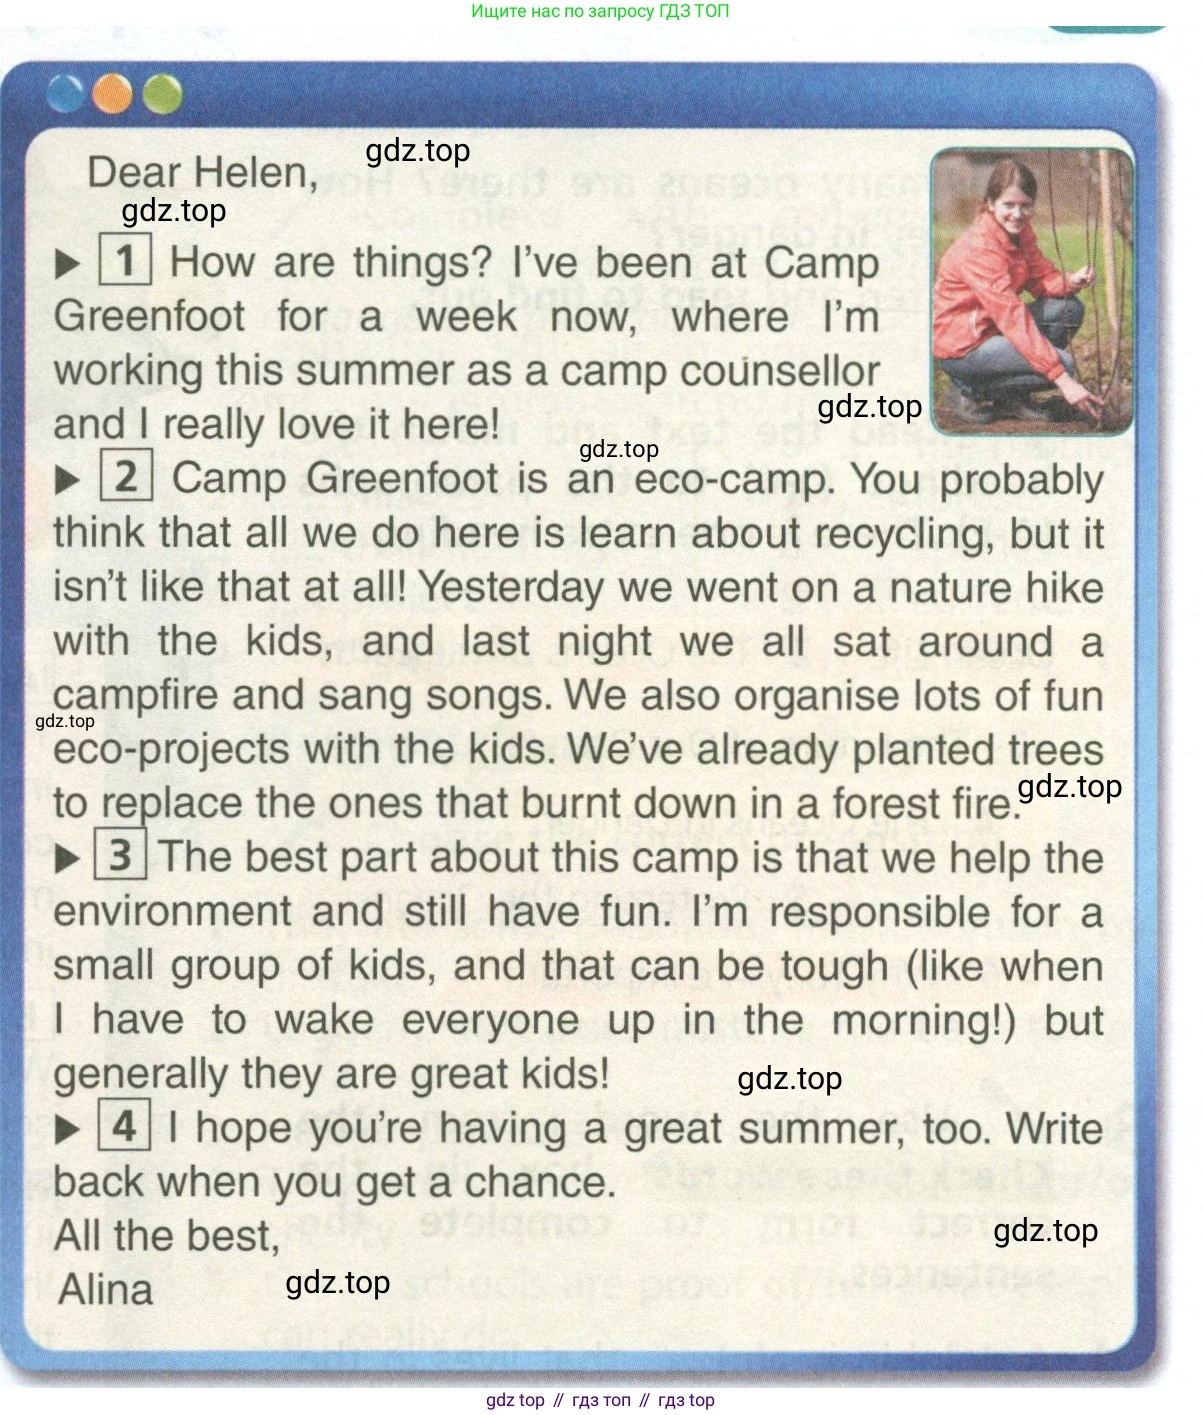 Ищите нас по запросу ГДЗ ТОП
Dear Helen,
gdz.top
gdz.top
1 How are things? I've been at Camp
Greenfoot for a week now, where I'm
working this summer as a camp counsellor
gdz.top
and I really love it here!
gdz.top
2 Camp Greenfoot is an eco-camp. You probably
think that all we do here is learn about recycling, but it
isn't like that at all! Yesterday we went on a nature hike
with the kids, and last night we all sat around a
campfire and sang songs. We also organise lots of fun
gdz.top
eco-projects with the kids. We've already planted trees
gdz.top
to replace the ones that burnt down in a forest fire.
3 The best part about this camp is that we help the
environment and still have fun. I'm responsible for a
small group of kids, and that can be tough (like when
I have to wake everyone up in the morning!) but
generally they are great kids!
gdz.top
4 I hope you're having a great summer, too. Write
back when you get a chance.
All the best,
gdz.top
Alina
gdz.top
gdz top // гдз топ // gdz top